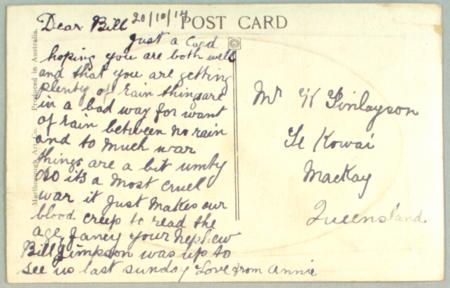 POST CARD
Dear Bill 20/10/14
just a Card
hoping you are both well
and that you are getting
plenty of rain things are
in a bad way for want
of rain between no rain
and to much war
things are a bit umty
Oo it's a most cruel
war it just makes our
blood creep to read the
age fancy your nephew
Bill Simpson was up to
see us last sunday Love from Annie
Mr W Finlayson
Te Kowai
Mackay
Queensland
Art Co. Produced in Australia.